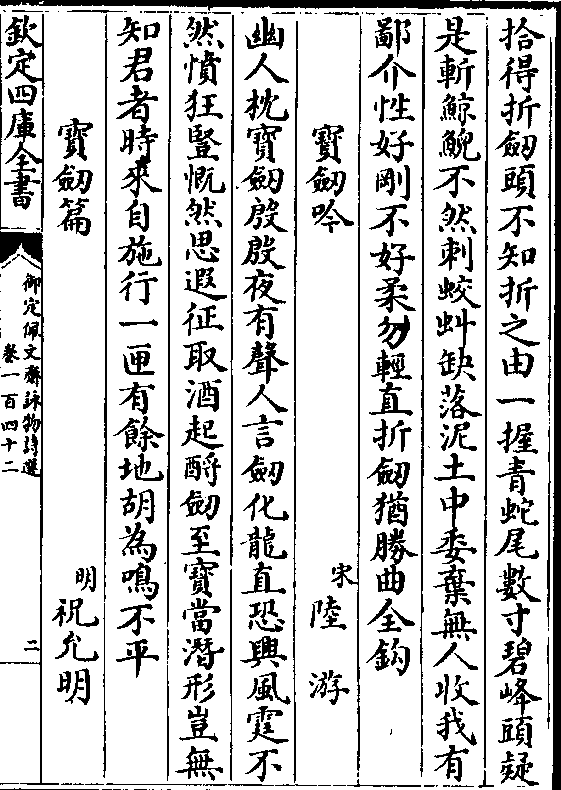 拾得折劒頭不知折之由一握青蛇尾數寸碧峰頭疑
是斬鯨鯢不然刺蛟虯缺落泥土中委棄無人收我有
鄙介性好剛不好柔勿輕直折劒猶勝曲全鈎
寳劒吟 宋 陸游
幽人枕寳劒殷殷夜有聲人言劒化龍直恐興風霆不
然憤狂豎慨然思遐征取酒起酹劒至寳當潛形豈無
知君者時來自施行一匣有餘地胡為鳴不平
寳劒篇 明 祝允明
欽定四庫全書 御定佩文齋詠物詩選 卷一百四十二 二